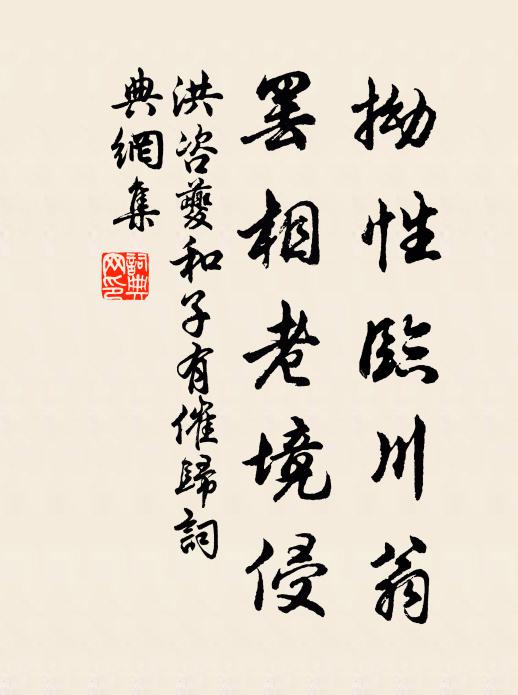 拗性臨川翁
罷相老境侵
洪咨夔和子有催歸詞
典網集
詞典网印